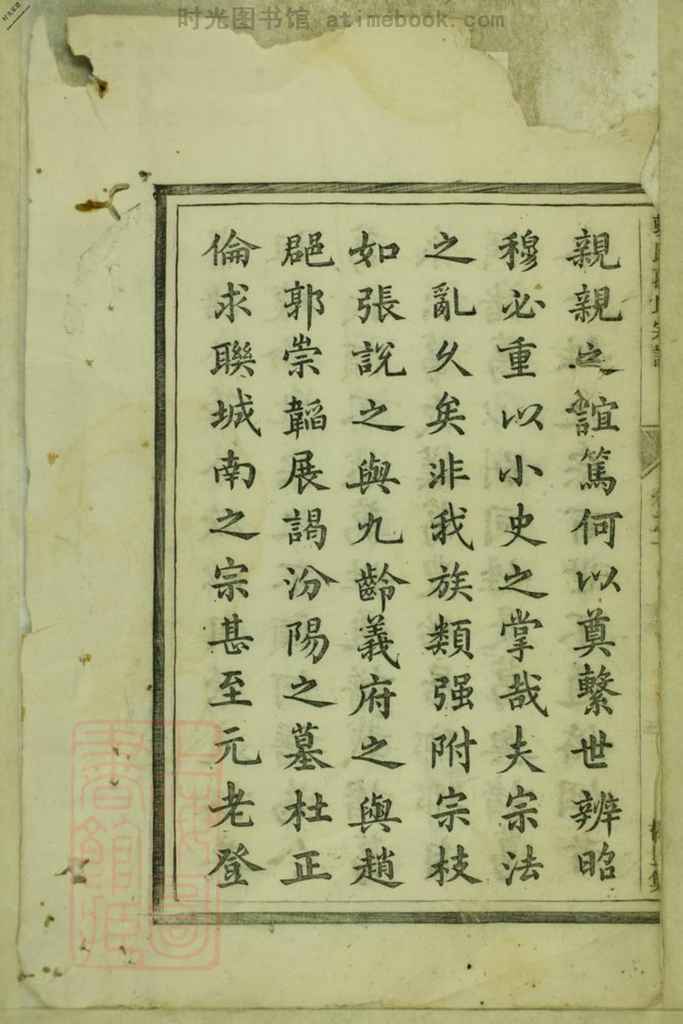 时光图书馆 atimebook.com
親親之誼篤何以奠繫世辨昭
穆必重以小史之掌哉夫宗法
之亂久矣非我族類强附宗枝
如張說之與九齡義府之與趙
郡郭崇韜展謁汾陽之墓杜正
倫求聯城南之宗甚至元老登